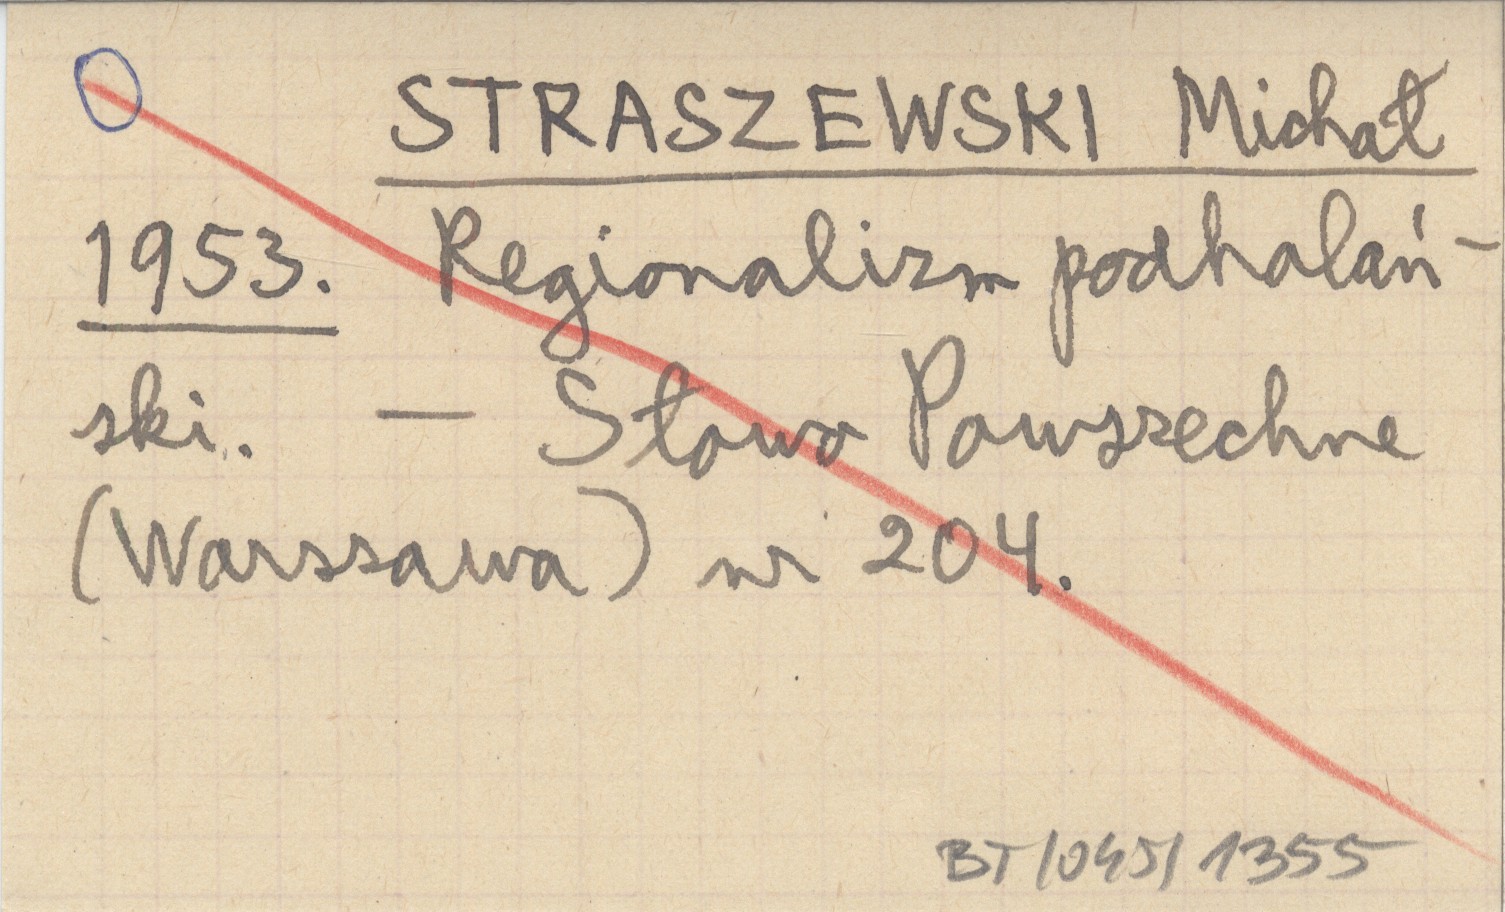 STRASZEWSKI Michał
1953. Regionalizm podhalań-
ski. — Słowo Powszechne
(Warszawa) nr 204.
BT/045/1355